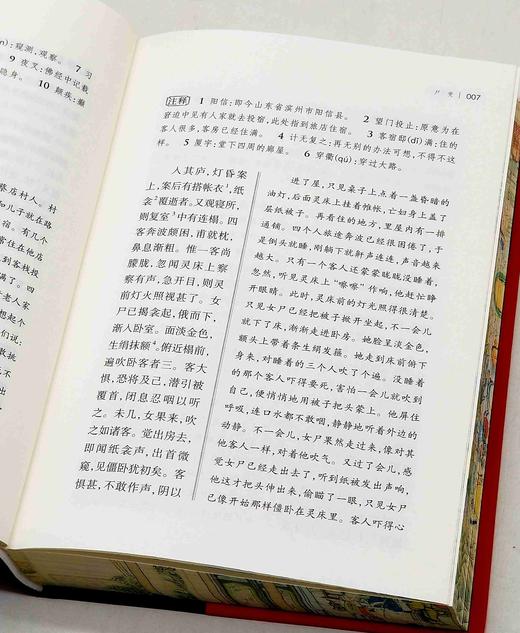 n)：窥测，观察。 7 习
9 夜叉：佛经中记载
隐身。
10 颠疾：癫
整店村人。村
和儿子就在路
宿。有几个
常住在他店
满了。四
客栈投
老人家
想起个
们说：
敢挑
尸变 | 007
注释 1 阳信：即今山东省滨州市阳信县。 2 望门投止：原意为在
窘迫中见有人家就去投宿，此处指到旅店住宿。 3 客宿邸(dǐ)满：住的
客人很多，客房已经住满。 4 计无复之：再无别的办法可想，不得不这
样。 5 厦宇：堂下四周的廊屋。 6 穿衢(qú)：穿过大路。
入其庐，灯昏案
上，案后有搭帐衣¹，纸
衾²覆逝者。又观寝所，
则复室³中有连榻。四
客奔波颇困，甫就枕，
鼻息渐粗。惟一客尚
朦胧，忽闻灵床上察
察有声，急开目，则灵
前灯火照视甚了。女
尸已揭衾起，俄而下，
渐入卧室。面淡金色，
生绢抹额⁴。俯近榻前，
遍吹卧客者三。客大
惧，恐将及己，潜引被
覆首，闭息忍咽以听
之。未几，女果来，吹
之如诸客。觉出房去，
即闻纸衾声，出首微
窥，见僵卧犹初矣。客
惧甚，不敢作声，阴以
进了屋，只见桌子上点着一盏昏暗的
油灯，后面灵床上挂着帷帐，亡妇身上盖了
层纸被子。再看住的地方，里屋内有一排
通铺。四个人旅途奔波已经很困倦了，于
是倒头就睡，刚躺下就鼾声连连，声音越来
越大。只有一个客人还蒙蒙眬眬没睡着，
忽然，听见灵床上“嚓嚓”作响，他赶忙睁
开眼睛。此时，灵床前的灯光照得很清楚。
只见女尸已经把被子掀开坐起，不一会儿
就下了床，渐渐走进卧房。她脸呈淡金色，
额头上带着条生绢发箍。她走到床前俯下
身来，对睡着的三个人吹了个遍。没睡着
的那个客人吓得要死，害怕一会儿就吹到
自己，便悄悄地用被子把头蒙上。他屏住
呼吸，连口水都不敢咽，静静地听着外边的
动静。不一会儿，女尸果然走过来，像对其
他客人一样，对着他吹气。又过了一会儿，感
觉女尸已经走出去了，听到纸被发出声响，
他这才把头伸出来，偷瞄了一眼，只见女尸
已像开始那样僵卧在灵床里。客人吓得心